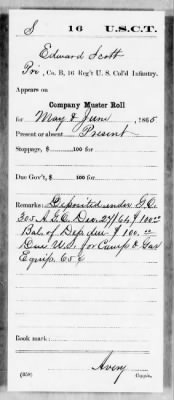 S 16 U.S.C.T.
Edward Scott
Pri, Co. B, 16 Reg't U. S. Col'd Infantry.
Appears on
Company Muster Roll
for May & June, 1865
Present or absent Present
Stoppage, $ 100 for
Due Gov't, $ 100 for
Remarks: Deposited under G.O.
305 A.G.O. Dec. 27/64 $100.00
Bal. of Dep due $100.00
Due U.S. for Camp & Gar
Equip. 65 ¢
Book mark:
Avery
(358) Copyist.